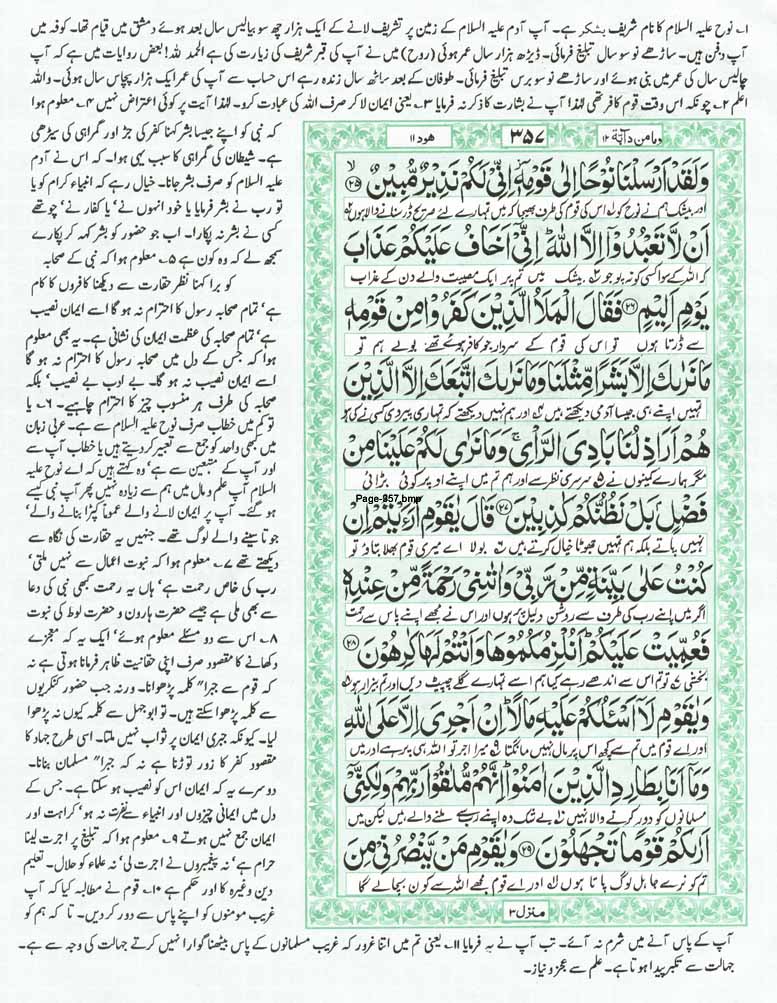 ۱۔ نوح علیہ السلام کا نام شریف یشکر ہے۔ آپ آدم علیہ السلام کے زمین پر تشریف لانے کے ایک ہزار چھ سو بیالیس سال بعد ہوئے دمشق میں قیام تھا۔ کوفہ میں
آپ دفن ہیں۔ ساڑھے نو سو سال تبلیغ فرمائی۔ ڈیڑھ ہزار سال عمر ہوئی (روح) میں نے آپ کی قبر شریف کی زیارت کی ہے الحمد للہ! بعض روایات میں ہے کہ آپ
چالیس سال کی عمر میں نبی ہوئے اور ساڑھے نو سو برس تبلیغ فرمائی۔ طوفان کے بعد ساٹھ سال زندہ رہے اس حساب سے آپ کی عمر ایک ہزار پچاس سال ہوئی۔ واللہ
اعلم ۲۔ چونکہ اس وقت قوم کافر تھی لہٰذا آپ نے بشارت کا ذکر نہ فرمایا ۳۔ یعنی ایمان لا کر صرف اللہ کی عبادت کرو۔ لہٰذا آیت پر کوئی اعتراض نہیں ۴۔ معلوم ہوا
ومامن دآبۃ ۱۲
۳۵۷
ھود ۱۱
وَلَقَدْ اَرْسَلْنَا نُوْحًا اِلٰى قَوْمِهٖۤ اِنِّیْ لَكُمْ نَذِیْرٌ مُّبِیْنٌ ﴿۲۵﴾
اور بیشک ہم نے نوح کو ۱ اس کی قوم کی طرف بھیجا کہ میں تمہارے لئے صریح ڈر سنانے والا ہوں ۲
اَنْ لَّا تَعْبُدُوْۤا اِلَّا اللّٰهَ ؕ اِنِّیْۤ اَخَافُ عَلَیْكُمْ عَذَابَ
کہ اللہ کے سوا کسی کو نہ پوجو ۳ بیشک میں تم پر ایک مصیبت والے دن کے عذاب
یَوْمٍ اَلِیْمٍ ﴿۲۶﴾ فَقَالَ الْمَلَاُ الَّذِیْنَ كَفَرُوْا مِنْ قَوْمِهٖ
سے ڈرتا ہوں تو اس کی قوم کے سردار جو کافر ہوئے تھے بولے ہم تو
مَا نَرٰىكَ اِلَّا بَشَرًا مِّثْلَنَا وَمَا نَرٰىكَ اتَّبَعَكَ اِلَّا الَّذِیْنَ
تمہیں اپنے ہی جیسا آدمی دیکھتے ہیں ۴ اور ہم نہیں دیکھتے کہ تمہاری پیروی کسی نے کی ہو
هُمْ اَرَاذِلُنَا بَادِیَ الرَّاْیِ ۚ وَمَا نَرٰى لَكُمْ عَلَیْنَا مِنْ
مگر ہمارے کمینوں نے ۵ سرسری نظر سے اور ہم تم میں اپنے اوپر کوئی بڑائی
فَضْلٍۭ بَلْ نَظُنُّكُمْ كٰذِبِیْنَ ﴿۲۷﴾ قَالَ یٰقَوْمِ اَرَءَیْتُمْ اِنْ
Page-357.bmp
نہیں پاتے بلکہ ہم تمہیں جھوٹا خیال کرتے ہیں ۶ بولا اے میری قوم بھلا بتاؤ تو
كُنْتُ عَلٰى بَیِّنَةٍ مِّنْ رَّبِّیْ وَاٰتٰىنِیْ رَحْمَةً مِّنْ عِنْدِهٖ
اگر میں اپنے رب کی طرف سے روشن دلیل پر ہوں اور اس نے مجھے اپنے پاس سے رحمت
فَعُمِّیَتْ عَلَیْكُمْ ؕ اَنُلْزِمُكُمُوْهَا وَاَنْتُمْ لَهَا كٰرِهُوْنَ ﴿۲۸﴾
بخشی ۷ تو تم اس سے اندھے رہے کیا ہم اسے تمہارے گلے چپیٹ دیں اور تم بیزار ہو ۸
وَیٰقَوْمِ لَاۤ اَسْئَلُكُمْ عَلَیْهِ مَالًا ؕ اِنْ اَجْرِیَ اِلَّا عَلَى اللّٰهِ
اور اے قوم میں تم سے کچھ اس پر مال نہیں مانگتا ۹ میرا اجر تو اللہ ہی پر ہے اور میں
وَمَاۤ اَنَا بِطَارِدِ الَّذِیْنَ اٰمَنُوْا ؕ اِنَّهُمْ مُّلٰقُوْا رَبِّهِمْ وَلٰكِنِّیْۤ
مسلمانوں کو دور کرنے والا نہیں ۱۰ بے شک وہ اپنے رب سے ملنے والے ہیں لیکن میں
اَرٰىكُمْ قَوْمًا تَجْهَلُوْنَ ﴿۲۹﴾ وَیٰقَوْمِ مَنْ یَّنْصُرُنِیْ مِنَ
تم کو نرے جاہل لوگ پاتا ہوں ۱۱ اور اے قوم مجھے اللہ سے کون بچا لے گا
منزل ۳
کہ نبی کو اپنے جیسا بشر کہنا کفر کی جڑ اور گمراہی کی سیڑھی
ہے۔ شیطان کی گمراہی کا سبب یہی ہوا۔ کہ اس نے آدم
علیہ السلام کو صرف بشر جانا۔ خیال رہے کہ انبیاء کرام کو یا
تو رب نے بشر فرمایا یا خود انہوں نے' یا کفار نے' چوتھے
کسی نے بشر نہ پکارا۔ اب جو حضور کو بشر کہہ کر پکارے
سمجھ لے کہ وہ کون ہے ۵۔ معلوم ہوا کہ نبی کے صحابہ
کو برا کہنا نظر حقارت سے دیکھنا کافروں کا کام
ہے' تمام صحابہ رسول کا احترام نہ ہو گا اسے ایمان نصیب
ہے' تمام صحابہ کی عظمت ایمان کی نشانی ہے۔ یہ بھی معلوم
ہوا کہ جس کے دل میں صحابہ رسول کا احترام نہ ہو گا
اسے ایمان نصیب نہ ہو گا۔ بے ادب بے نصیب' بلکہ
صحابہ کی طرف ہر منسوب چیز کا احترام چاہیے۔ ۶۔ یا
تو کم میں خطاب صرف نوح علیہ السلام سے ہے۔ عربی زبان
میں کبھی واحد کو جمع سے تعبیر کر دیتے ہیں یا خطاب آپ سے
اور آپ کے متبعین سے ہے' وہ کہتے ہیں کہ اے نوح علیہ
السلام آپ علم و مال میں ہم سے زیادہ نہیں پھر آپ نبی کیسے
ہو گئے۔ آپ پر ایمان لانے والے عموماً کپڑا بنانے والے'
جوتا سینے والے لوگ تھے۔ جنہیں یہ حقارت کی نگاہ سے
دیکھتے تھے ۷۔ معلوم ہوا کہ نبوت اعمال سے نہیں ملتی'
رب کی خاص رحمت ہے' ہاں یہ رحمت کبھی نبی کی دعا
سے بھی ملی ہے جیسے حضرت ہارون و حضرت لوط کی نبوت
۸۔ اس سے دو مسئلے معلوم ہوئے' ایک یہ کہ معجزے
دکھانے کا مقصود صرف اپنی حقانیت ظاہر فرمانا ہوتی ہے نہ
کہ قوم سے جبرا" کلمہ پڑھوانا۔ ورنہ جب حضور کنکریوں
سے کلمہ پڑھوا سکتے ہیں۔ تو ابو جہل سے کلمہ کیوں نہ پڑھوا
لیا۔ کیونکہ جبری ایمان پر ثواب نہیں ملتا۔ اسی طرح جہاد کا
مقصود کفر کا زور توڑنا ہے نہ کہ جبرا" مسلمان بنانا۔
دوسرے یہ کہ ایمان اس کو نصیب ہو سکتا ہے۔ جس کے
دل میں ایمانی چیزوں اور انبیاء سے نفرت نہ ہو' کراہت اور
ایمان جمع نہیں ہوتے ۹۔ معلوم ہوا کہ تبلیغ پر اجرت لینا
حرام ہے' نہ پیغمبروں نے اجرت لی' نہ علماء کو حلال۔ تعلیم
دین وغیرہ کا اور حکم ہے ۱۰۔ قوم نے مطالبہ کیا کہ آپ
غریب مومنوں کو اپنے پاس سے دور کر دیں۔ تا کہ ہم کو
آپ کے پاس آنے میں شرم نہ آئے۔ تب آپ نے یہ فرمایا ۱۱۔ یعنی تم میں اتنا غرور کہ غریب مسلمانوں کے پاس بیٹھنا گوارا نہیں کرتے جہالت کی وجہ سے ہے۔
جہالت سے تکبر پیدا ہوتا ہے۔ علم سے عجز و نیاز۔